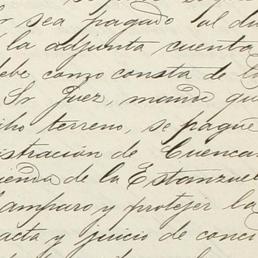 or sea pagado al du
la adjunta cuenta
debe como consta de la
Sr Juez, mande qu
cho terreno, se pague
istración de Cuenca
ienda de la Estanzuel
amparo y protejer la
acta y juicio de conci